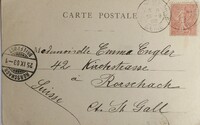 CARTE POSTALE
Mademoiselle Emma Engler
42 Kirchstrasse
à
Rorschach
Suisse
Ct. St. Gall
RORSCHACH
25.IX.03